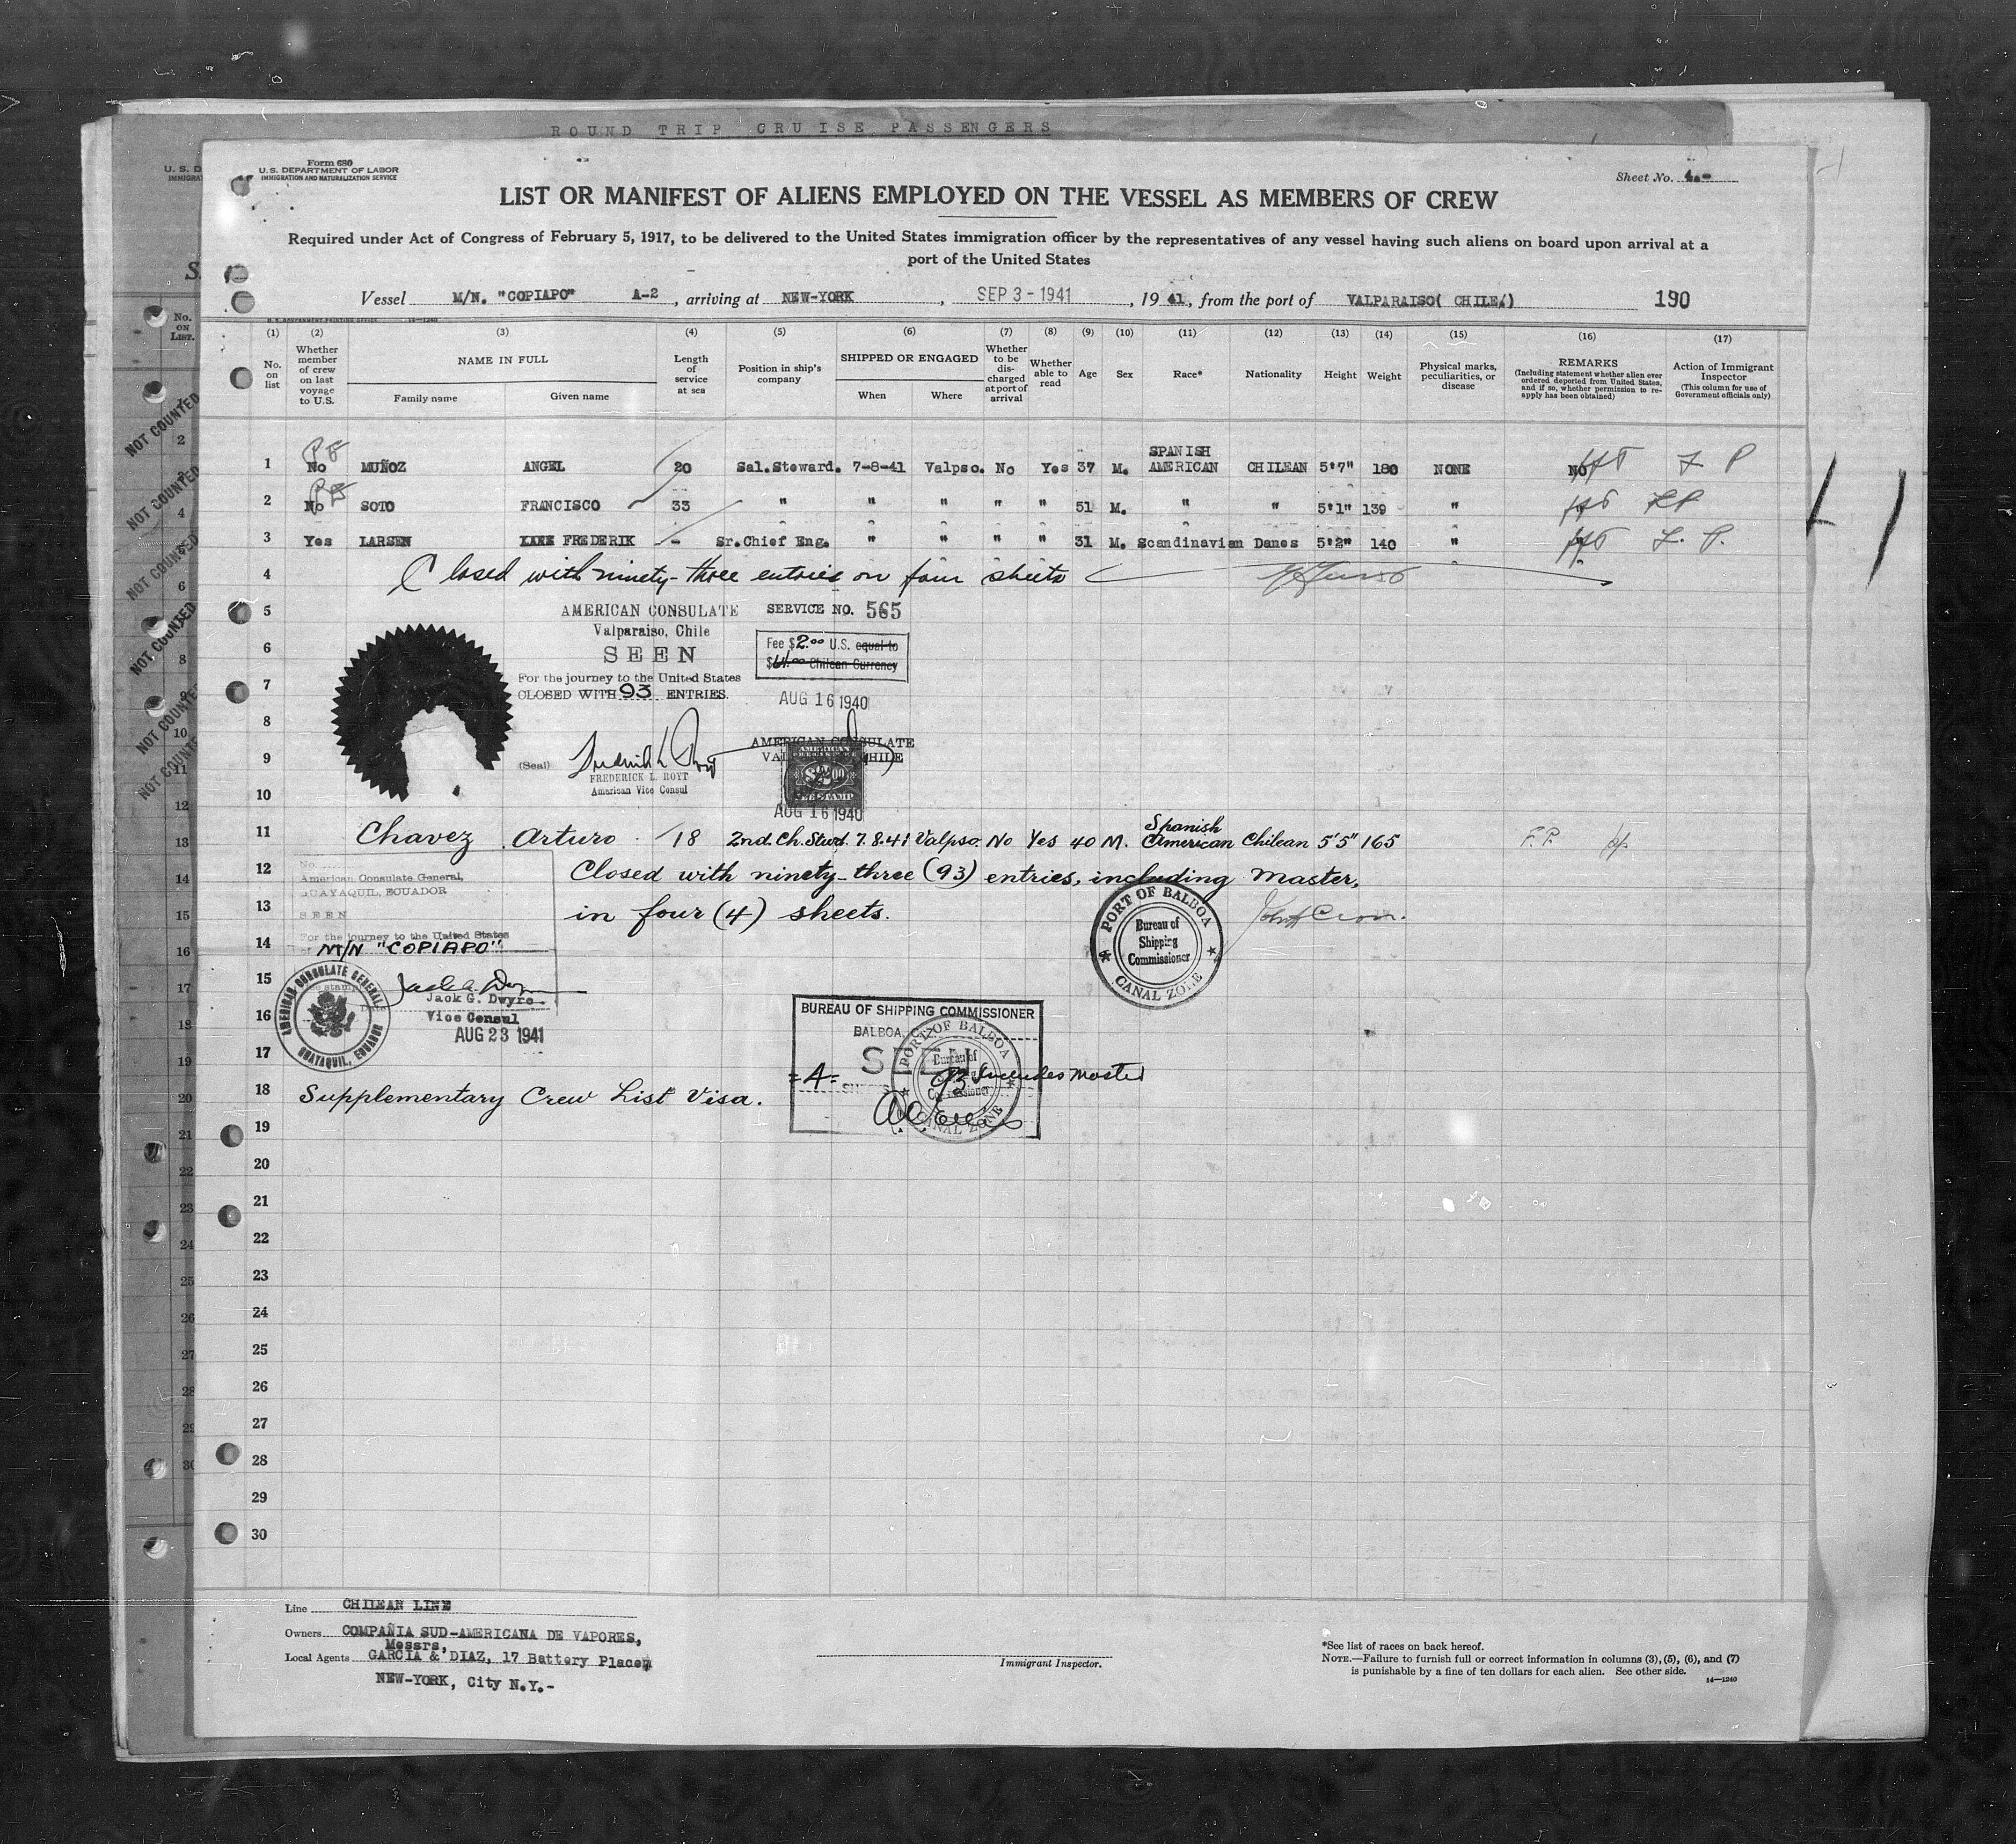 ROUND TRIP CRUISE PASSENGERS
Form 680
U. S. DEPARTMENT OF LABOR
IMMIGRATION AND NATURALIZATION SERVICE
Sheet No. 4.-
LIST OR MANIFEST OF ALIENS EMPLOYED ON THE VESSEL AS MEMBERS OF CREW
Required under Act of Congress of February 5, 1917, to be delivered to the United States immigration officer by the representatives of any vessel having such aliens on board upon arrival at a
port of the United States
Vessel M/N. "COPIAPO" A-2, arriving at NEW-YORK, SEP 3 - 1941, 1941, from the port of VALPARAISO( CHILE/) 190
(1) (2) (3) (4) (5) (6) (7) (8) (9) (10) (11) (12) (13) (14) (15) (16) (17)
No. on list
Whether member of crew on last voyage to U.S.
NAME IN FULL
Family name
Given name
Length of service at sea
Position in ship's company
SHIPPED OR ENGAGED
When
Where
Whether to be discharged at port of arrival
Whether able to read
Age
Sex
Race*
Nationality
Height
Weight
Physical marks, peculiarities, or disease
REMARKS
(Including statement whether alien ever ordered deported from United States, and if so, whether permission to reapply has been obtained)
Action of Immigrant Inspector
(This column for use of Government officials only)
1 No MUÑOZ ANGEL 20 Sal.Steward. 7-8-41 Valpso. No Yes 37 M. SPANISH AMERICAN CHILEAN 5'7" 180 NONE NO
2 No SOTO FRANCISCO 33 " " " " " 51 M. " " 5'1" 139 "
3 Yes LARSEN FREDERIK - Sr.Chief Eng. " " " " 31 M. Scandinavian Danes 5'2" 140 " "
4 Closed with ninety-three entries on four sheets
5 AMERICAN CONSULATE SERVICE NO. 565
Valparaiso, Chile
6 SEEN Fee $2.00 U.S. equal to
$64.00 Chilean Currency
For the journey to the United States
7 CLOSED WITH 93 ENTRIES.
AUG 16 1940
8
AMERICAN CONSULATE
VALPARAISO, CHILE
9 (Seal)
FREDERICK L. ROYT
American Vice Consul
AMERICAN
$2.00
FEE STAMP
10
AUG 16 1940
11 Chavez Arturo 18 2nd. Ch. Stwd. 7.8.41 Valpso. No Yes 40 M. Spanish American Chilean 5'5" 165 F.P.
12 Closed with ninety-three (93) entries, including Master,
13 in four (4) sheets.
No.
American Consulate General,
GUAYAQUIL, ECUADOR
SEEN
For the journey to the United States
14 M/N "COPIAPO"
PORT OF BALBOA
Bureau of
Shipping
Commissioner
CANAL ZONE
15
Jack G. Dwyre
16 Vice Consul
AUG 23 1941
AMERICAN CONSULATE GENERAL
GUAYAQUIL, ECUADOR
BUREAU OF SHIPPING COMMISSIONER
BALBOA,
SEEN
PORT OF BALBOA
Bureau of
Commissioner
CANAL ZONE
17
=4= 93 Includes Master
18 Supplementary Crew List Visa.
19
20
21
22
23
24
25
26
27
28
29
30
Line CHILEAN LINE
Owners COMPAÑIA SUD-AMERICANA DE VAPORES,
Messrs,
Local Agents GARCIA & DIAZ, 17 Battery Place,
NEW-YORK, City N.Y.-
Immigrant Inspector.
*See list of races on back hereof.
NOTE.—Failure to furnish full or correct information in columns (3), (5), (6), and (7)
is punishable by a fine of ten dollars for each alien. See other side.
14—1240
No. on List.
NOT COUNTED
NOT COUNTED
NOT COUNTED
NOT COUNTED
NOT COUNTED
NOT COUNTED